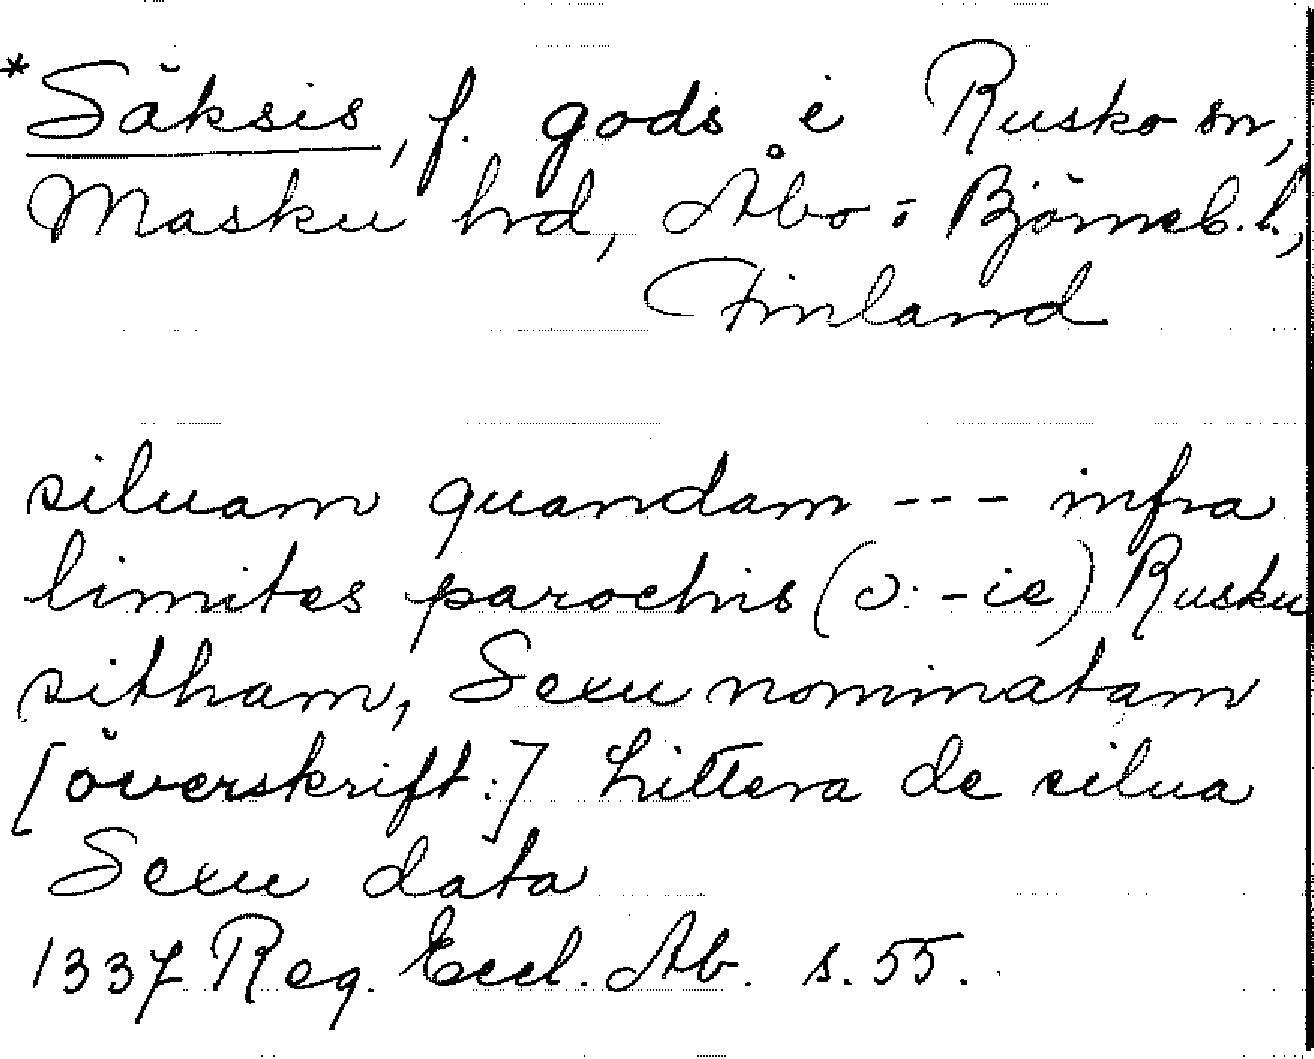 *Säksis, f. gods i Rusko sn,
Masku hd, Åbo o. Björneb. l.,
Finland
siluam quandam --- infra
limites parochis (ɔ: -ie) Rusku
sitham, Sexu nominatam
[överskrift:] Littera de silua
Sexu data
1337 Reg. Eccl. Ab. s. 55.